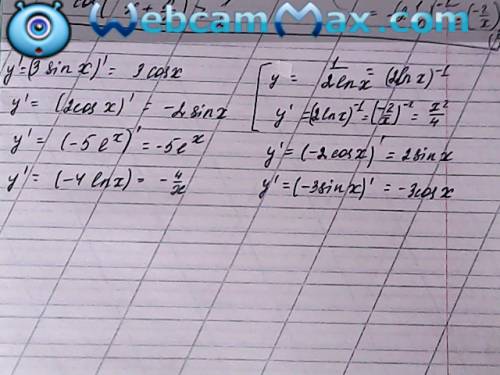 WebcamMax.com
y' = (3 sin x)' = 3 cos x
y' = (2cos x)' = -2 sin x
y' = (-5e^x)' = -5e^x
y' = (-4 ln x) = -4/x
y = 1/2lnx = (2ln x)^-1
y' = (2ln x)^-1 = (-2/x)^-2 = x²/4
y' = (-2cos x)' = 2 sin x
y' = (-3sin x)' = -3cos x